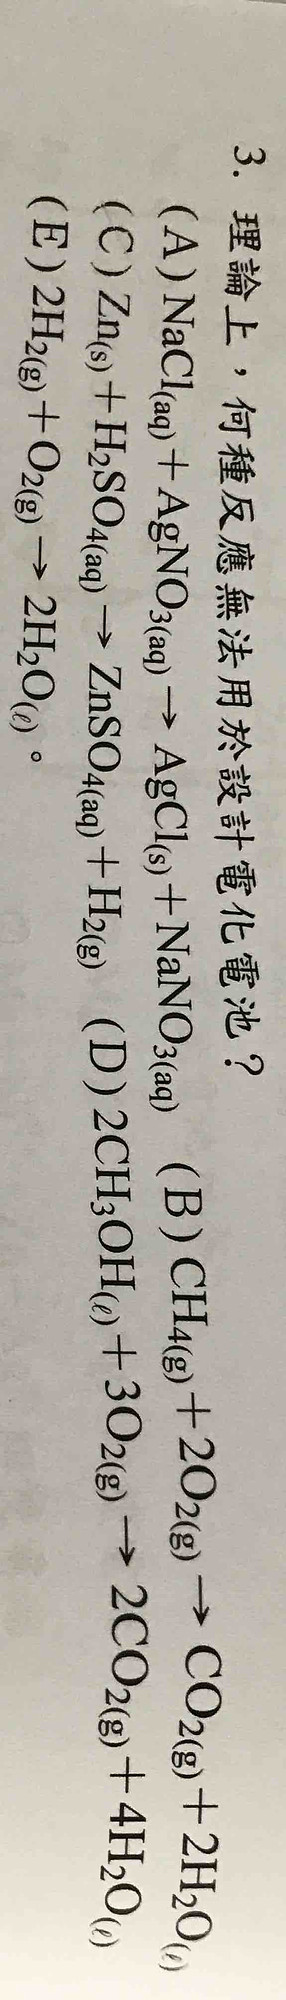 3. 理論上，何種反應無法用於設計電化電池？
(A) NaCl(aq)＋AgNO₃(aq)→AgCl(s)＋NaNO₃(aq) (B) CH₄(g)＋2O₂(g)→CO₂(g)＋2H₂O(ℓ)
(C) Zn(s)＋H₂SO₄(aq)→ZnSO₄(aq)＋H₂(g) (D) 2CH₃OH(ℓ)＋3O₂(g)→2CO₂(g)＋4H₂O(ℓ)
(E) 2H₂(g)＋O₂(g)→2H₂O(ℓ)。